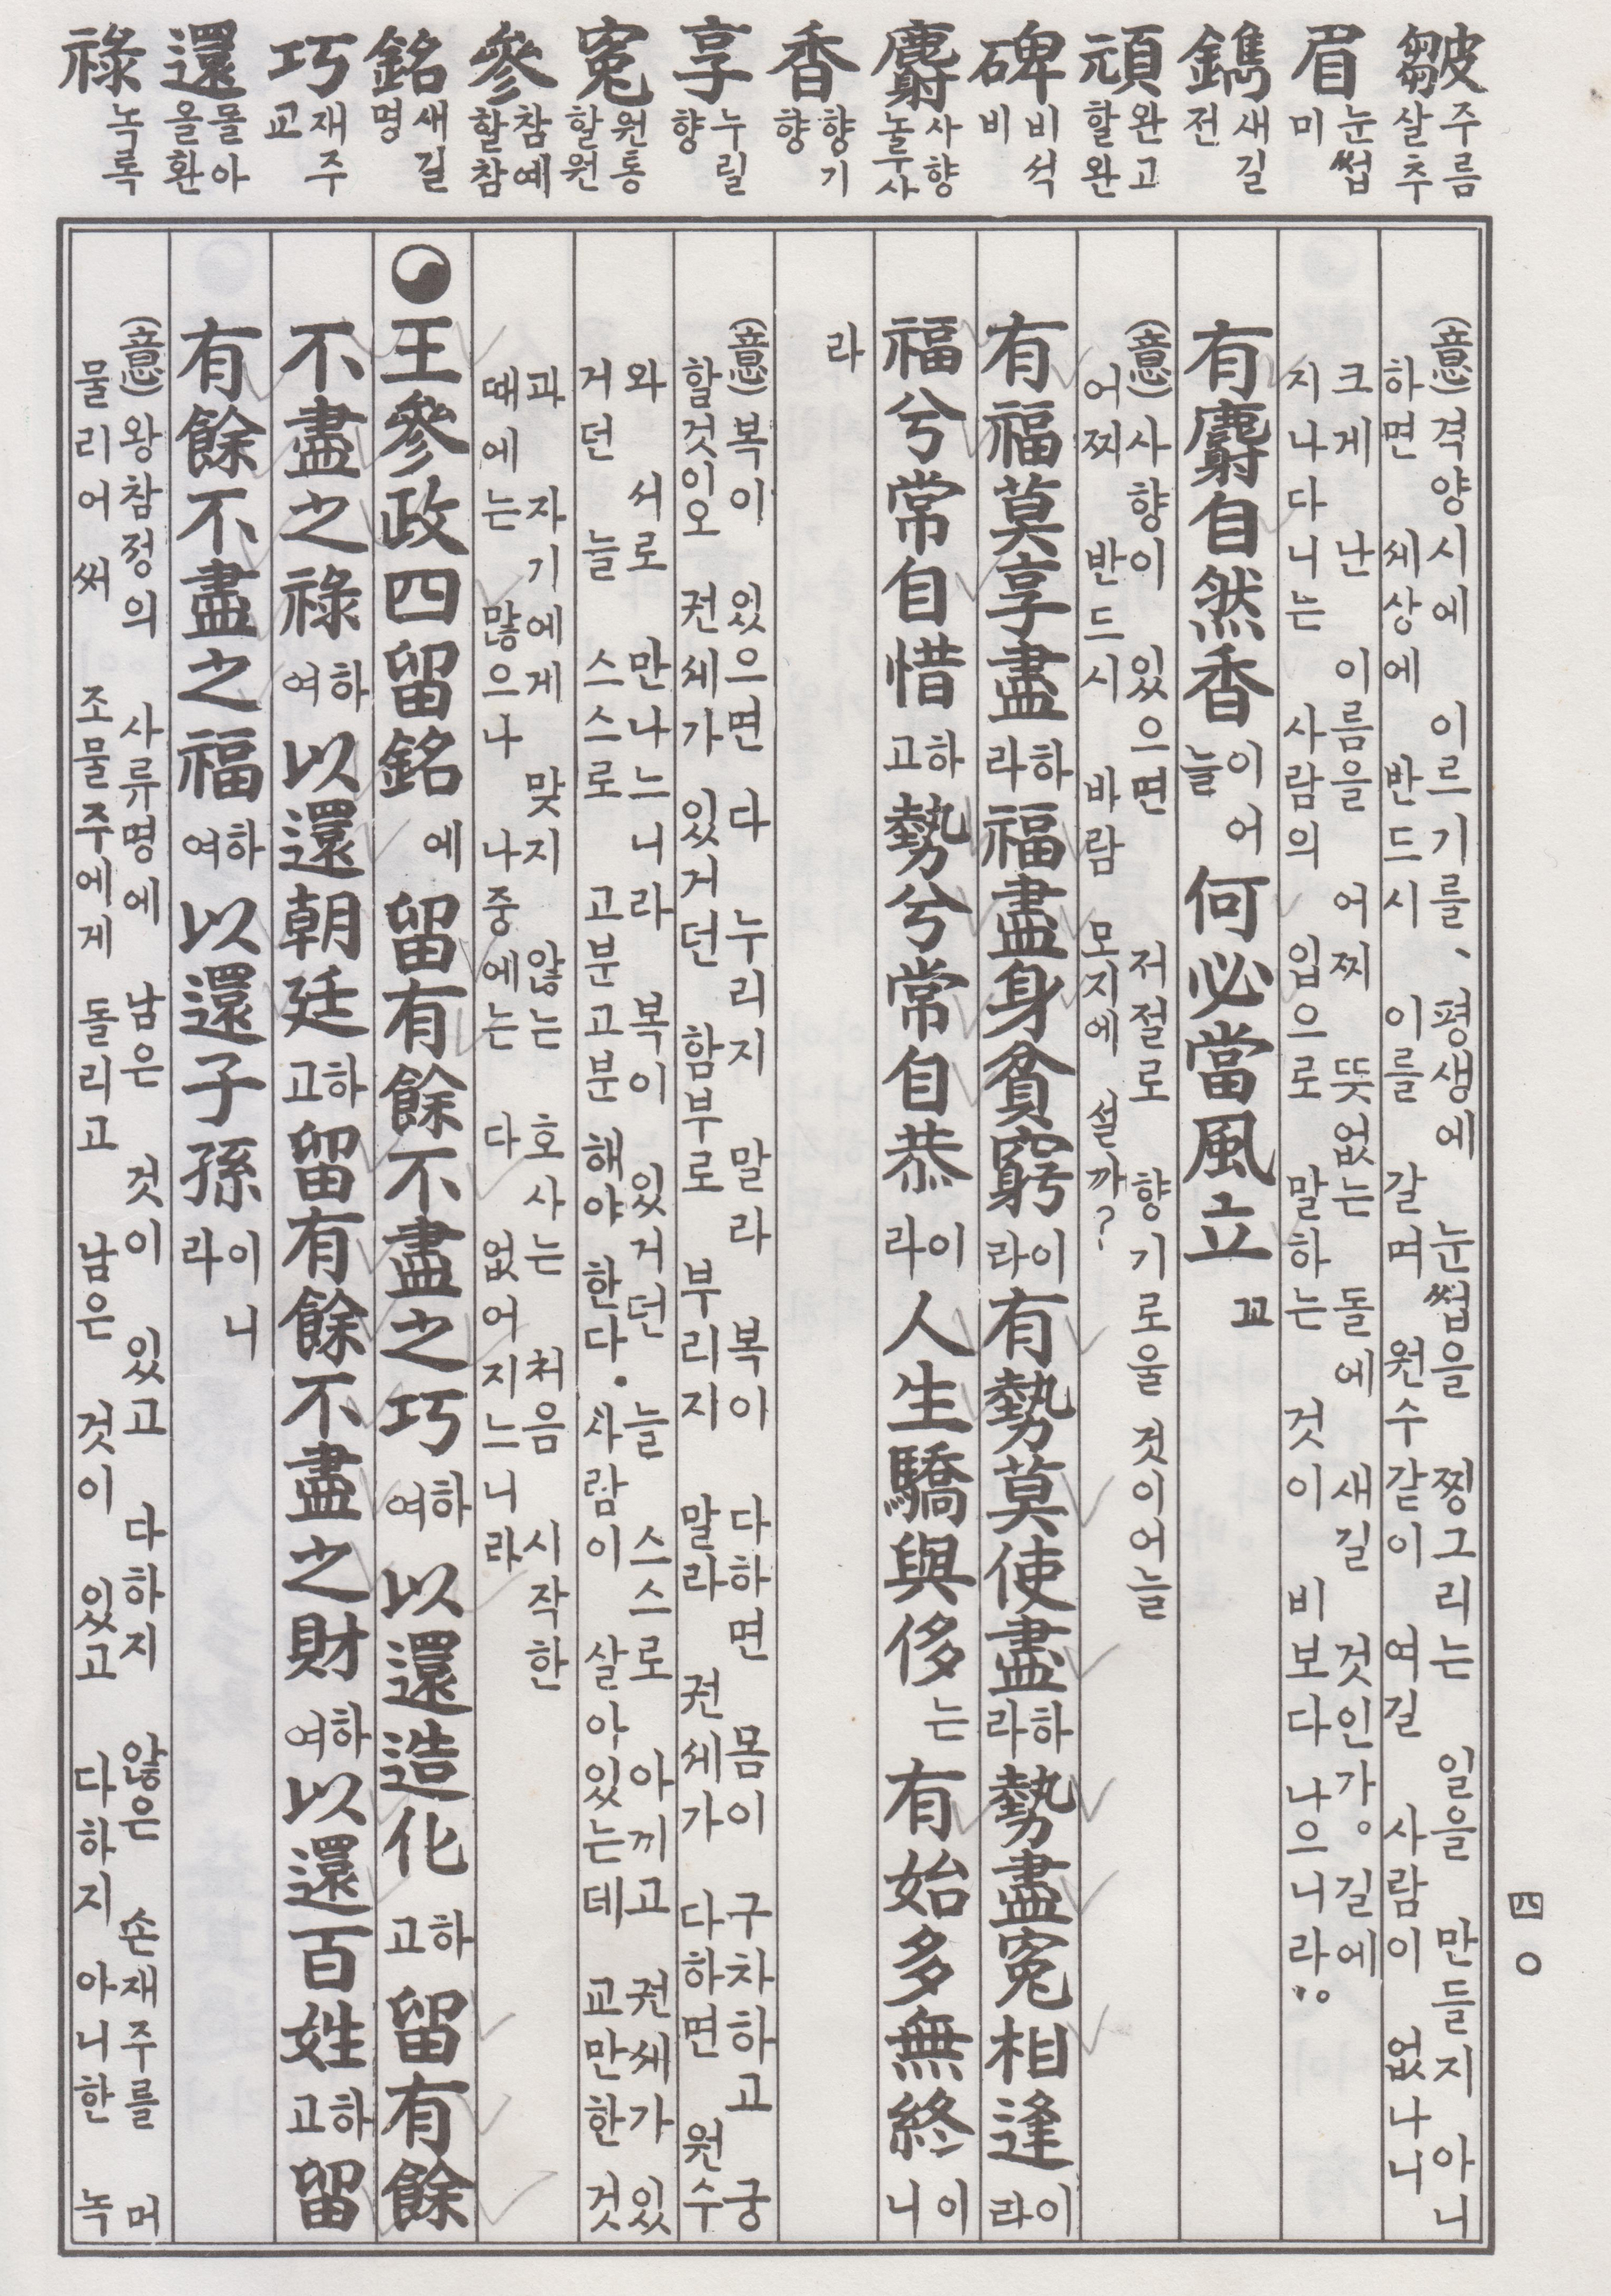 皺 주름살추
眉 눈썹미
鐫 새길전
頑 완고할완
碑 비석비
麝 사향놀루사
香 향기향
享 누릴향
寃 원통할원
參 참예할참
銘 새길명
巧 재주교
還 돌아올환
祿 녹록
(意) 격양시에 이르기를、 평생에 눈썹을 찡그리는 일을 만들지 아니
하면 세상에 반드시 이를 갈며 원수같이 여길 사람이 없나니
크게 난 이름을 어찌 뜻없는 돌에 새길 것인가。 길에
지나다니는 사람의 입으로 말하는 것이 비보다 나으니라。”
有麝自然香이어늘 何必當風立고
(意) 사향이 있으면 저절로 향기로울 것이어늘
어찌 반드시 바람 모지에 설까?
有福莫享盡하라 福盡身貧窮이라 有勢莫使盡하라 勢盡寃相逢이라
福兮常自惜하고 勢兮常自恭이라 人生驕與侈는 有始多無終이니
라
(意) 복이 있으면 다 누리지 말라 복이 다하면 몸이 구차하고 궁
할것이오 권세가 있거던 함부로 부리지 말라 권세가 다하면 원수
와 서로 만나느니라 복이 있거던 늘 스스로 아끼고 권세가 있
거던 늘 스스로 고분고분 해야 한다. 사람이 살아있는데 교만한 것
과 자기에게 맞지 않는 호사는 처음 시작한
때에는 많으나 나중에는 다 없어지느니라
王參政四留銘에 留有餘不盡之巧하여 以還造化하고 留有餘
不盡之祿하여 以還朝廷하고 留有餘不盡之財하여 以還百姓하고 留
有餘不盡之福하여 以還子孫이니라
(意) 왕참정의 사류명에 남은 것이 있고 다하지 않은 손재주를 머
물리어써 조물주에게 돌리고 남은 것이 있고 다하지 아니한 녹
四〇